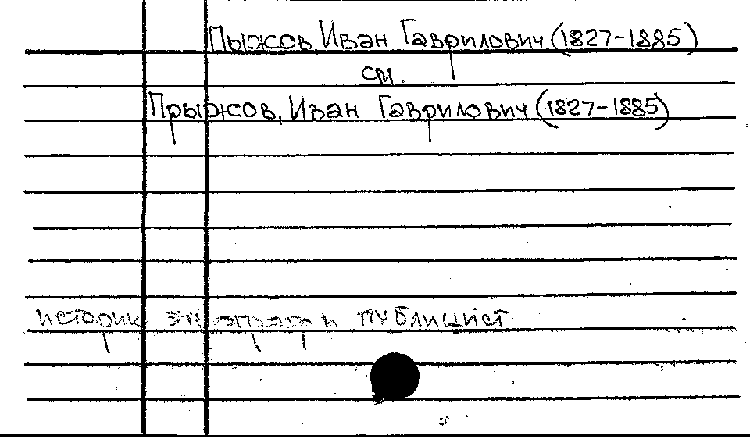 Пыжов, Иван Гаврилович (1827-1885)
см.
Прыжов, Иван Гаврилович (1827-1885)
историк этнограф и публицист